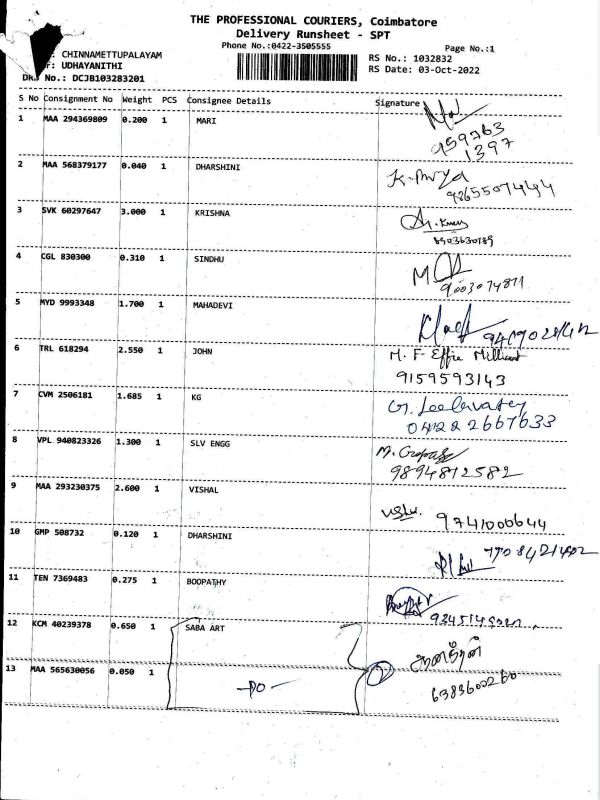 THE PROFESSIONAL COURIERS, Coimbatore
Delivery Runsheet - SPT
Phone No.:0422-3505555
Page No.:1
: CHINNAMETTUPALAYAM
RS No.: 1032832
r: UDHAYANITHI
RS Date: 03-Oct-2022
DRS No.: DCJB103283201
S No Consignment No Weight PCS Consignee Details Signature
1 MAA 294369809 0.200 1 MARI
959763
1397
2 MAA 568379177 0.040 1 DHARSHINI
9865507444
3 SVK 60297647 3.000 1 KRISHNA
8903630789
4 CGL 830300 0.310 1 SINDHU
9003074871
5 MYD 9993348 1.700 1 MAHADEVI
6 TRL 618294 2.550 1 JOHN M. F Effie
9159593143
7 CVM 2506181 1.685 1 KG
0422 2667633
8 VPL 940823326 1.300 1 SLV ENGG M. Gopal
9894812582
9 MAA 293230375 2.600 1 VISHAL
9741000644
10 GMP 508732 0.120 1 DHARSHINI
11 TEN 7369483 0.275 1 BOOPATHY
12 KCM 40239378 0.650 1 SABA ART
13 MAA 565630056 0.050 1 -DO- 2
6383600260